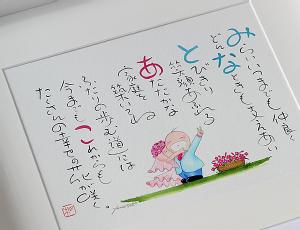 みらいいつまでも 仲良く
どんなときも支えあい
とびきり
笑顔あふれる
あたたかな
家庭を
築いてね
ふたりの歩む道には
今までもこれからも
たくさんの幸せの花が咲く。